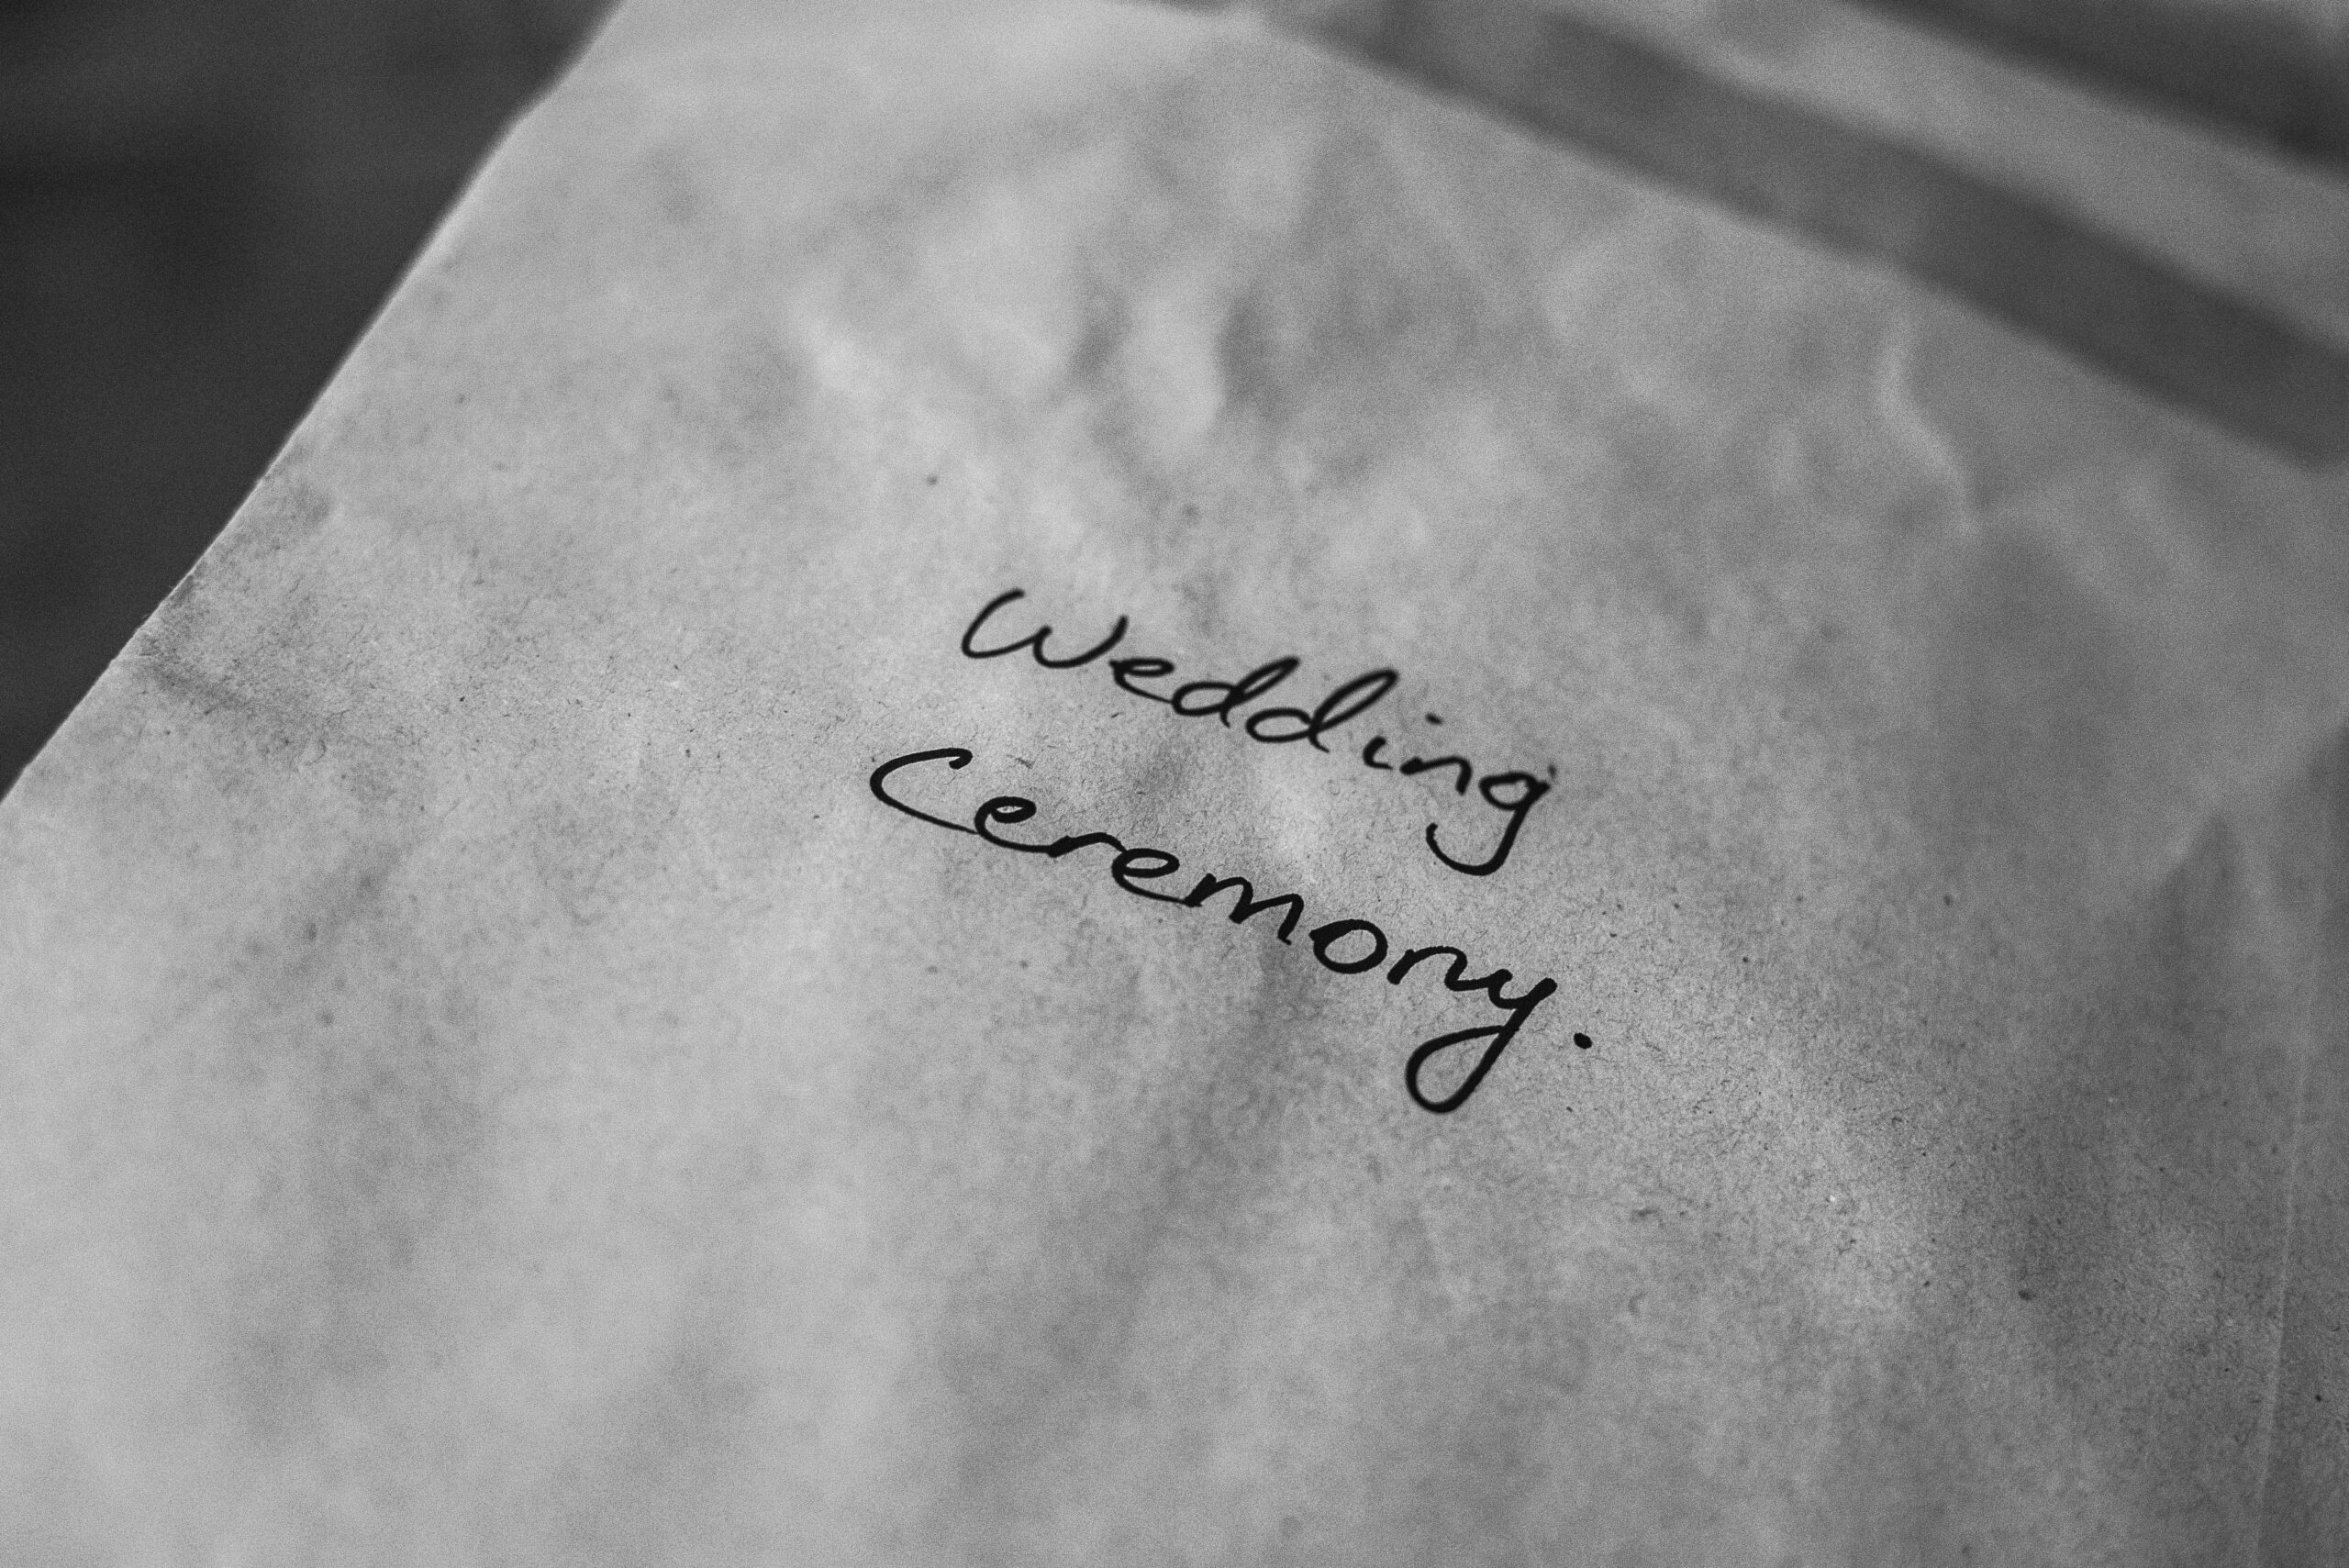 Wedding
Ceremony.